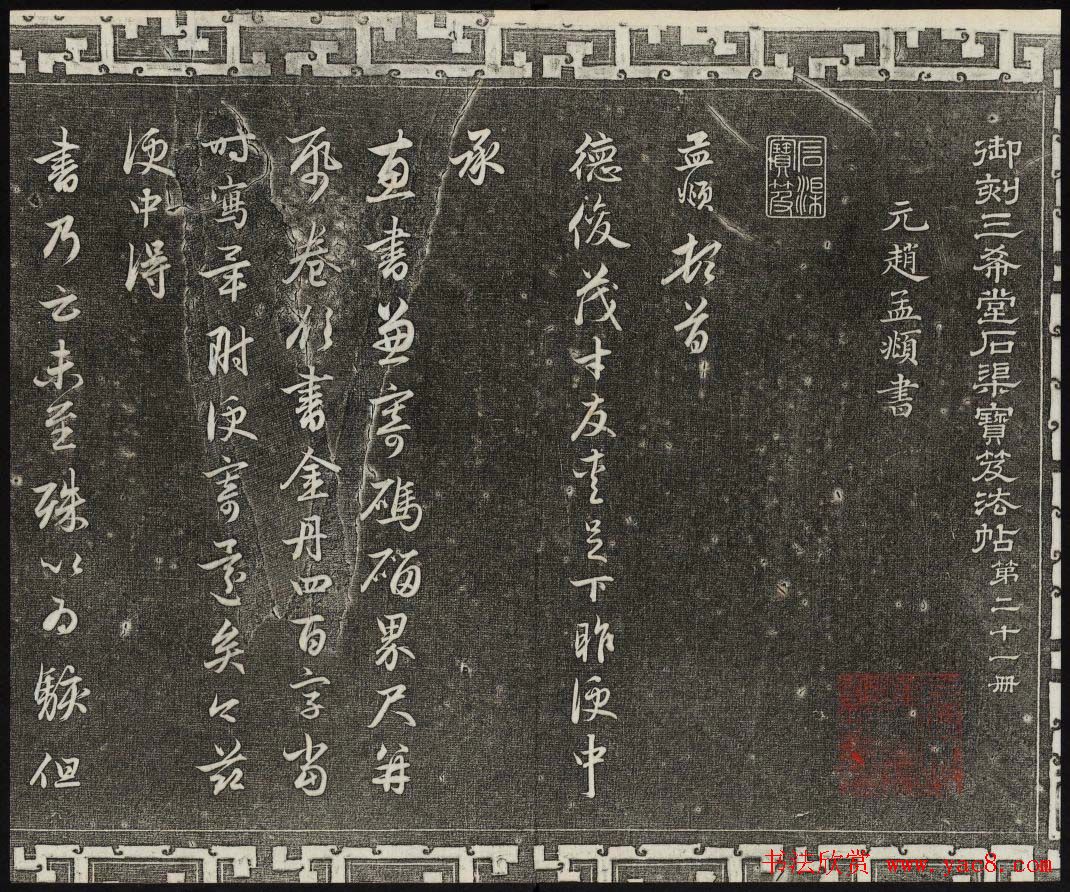 御刻三希堂石渠寶笈法帖第二十一冊
元趙孟頫書
石渠寶笈
孟頫頓首
德俊茂才友愛足下昨便中
承
惠書兼寄碼碯界尺并
紙卷欲書金丹四百字當
時寫畢附便寄還矣今茲
便中得
書乃云未至殊以為駭但
书法欣赏 www.yac8.com